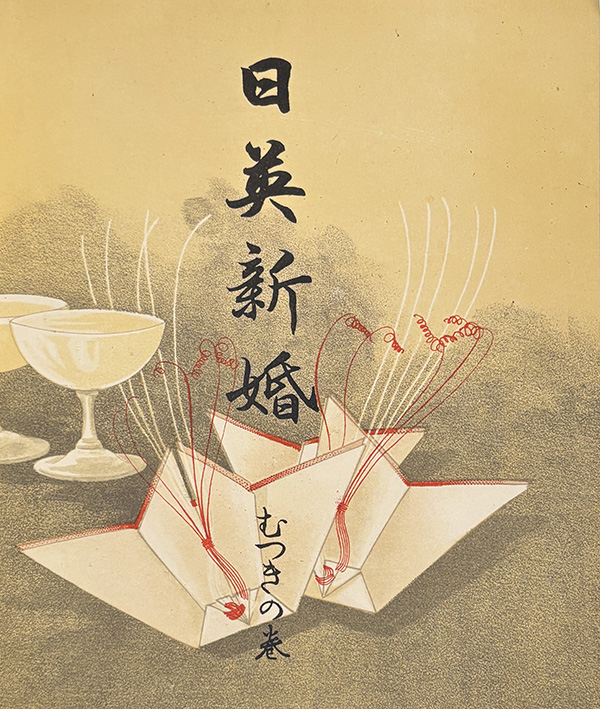 日英新婚
むつきの巻